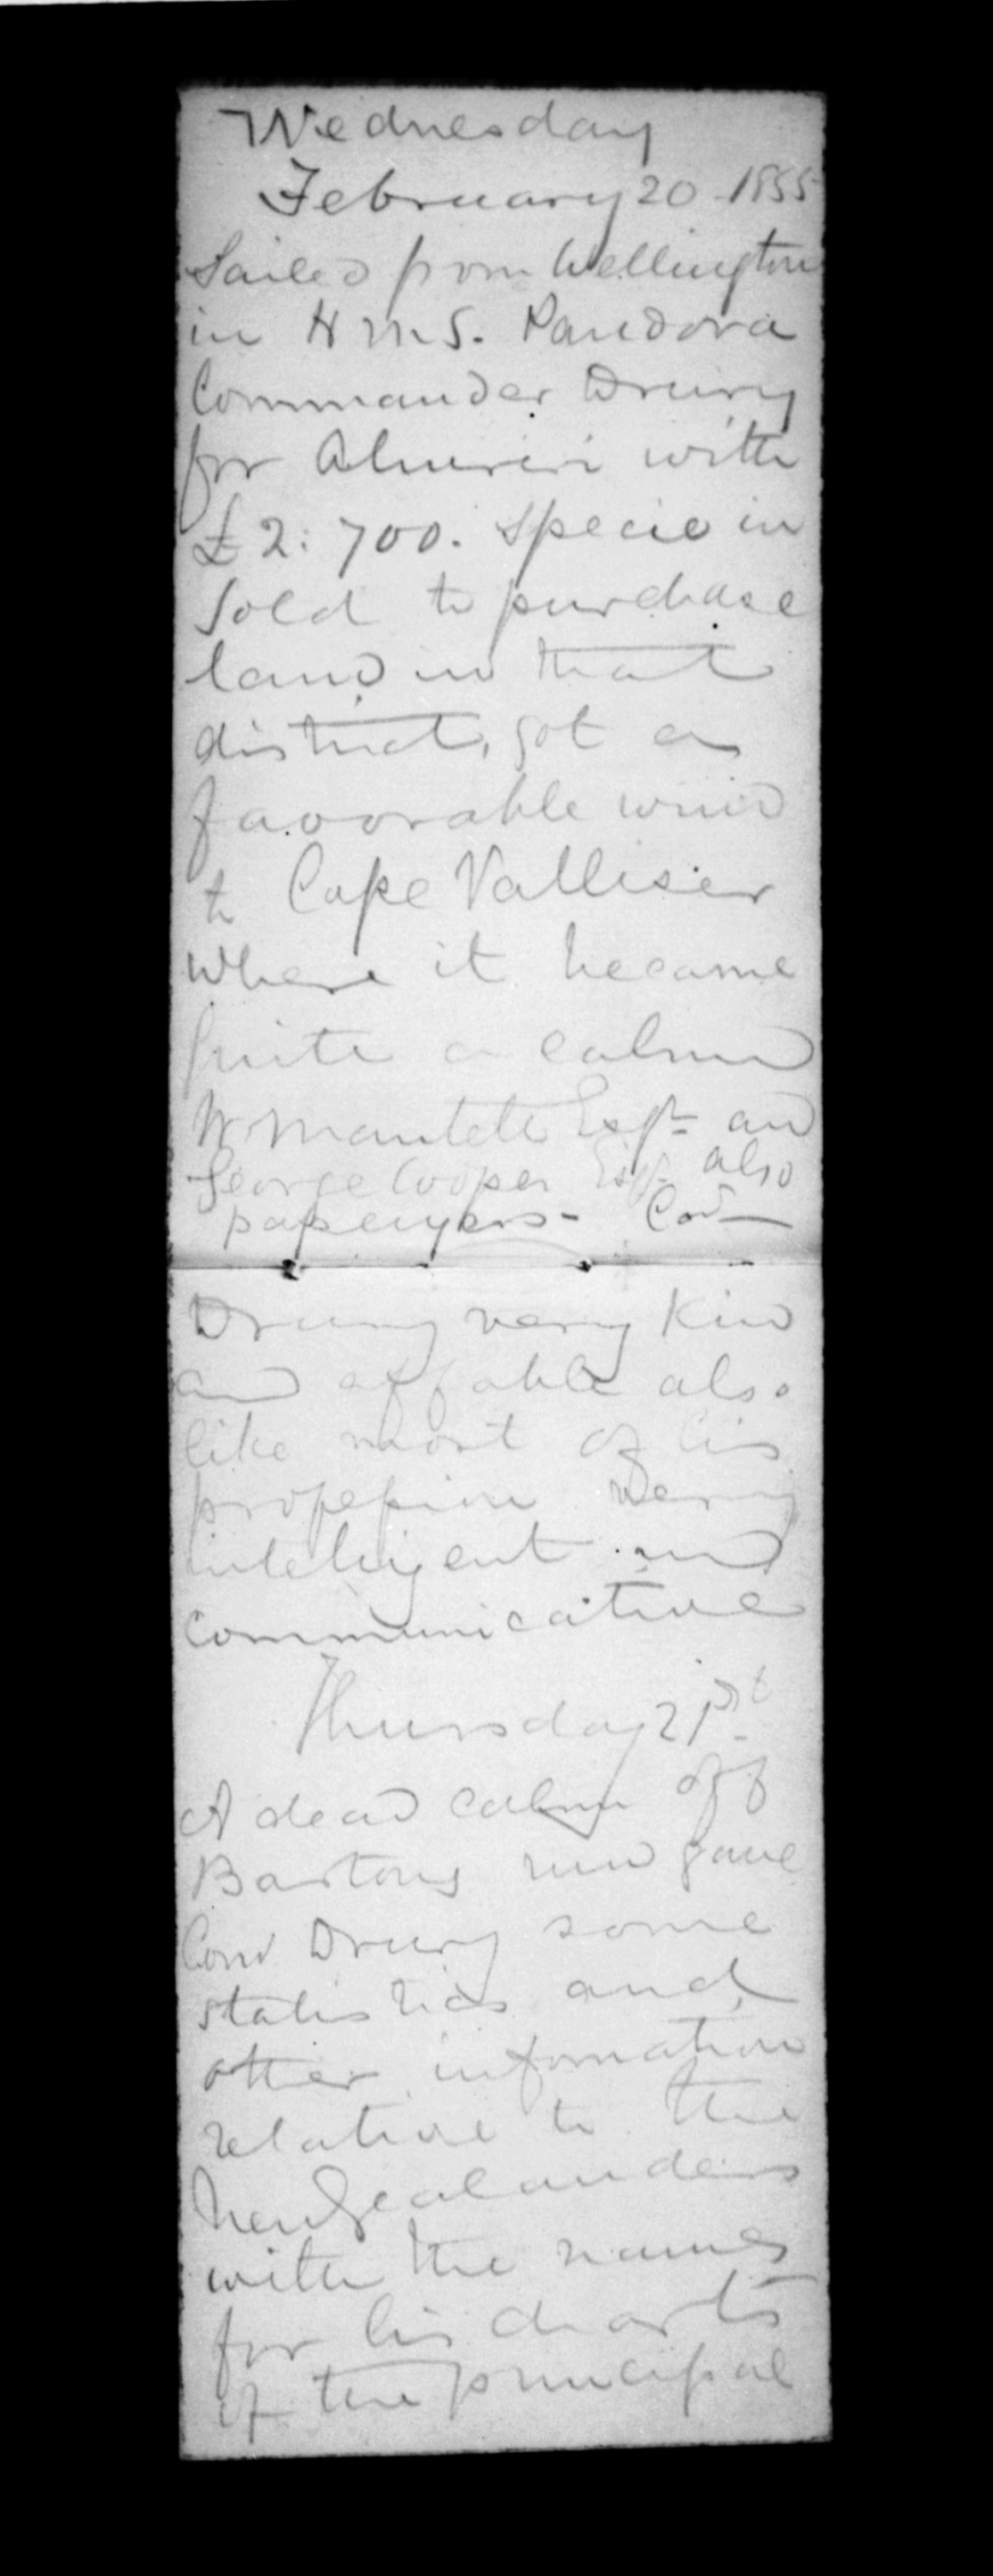 Wednesday
February 20 - 1855
Sailed from Wellington
in H M S. Pandora
Commander Drury
for Ahuriri with
£2: 700. specie in
Gold to purchase
land in that
district, got a
favorable wind
to Cape Valliser
where it became
quite a calm
W Mantell Esqr and
George Cooper Esq. also
passengers - Com
Drury very kind
and affable also
like most of his
profession very
intelligent and
communicative
Thursday 21st
A dead calm off
Bartons run gave
Com Drury some
statistics and
other information
relative to the
New Zealanders
with the names
for his charts
of the principal